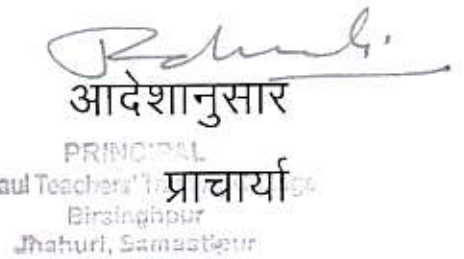 आदेशानुसार
PRINCIPAL
aul Teachers'
प्राचार्या
Birsinghpur
Jhahuri, Samastipur